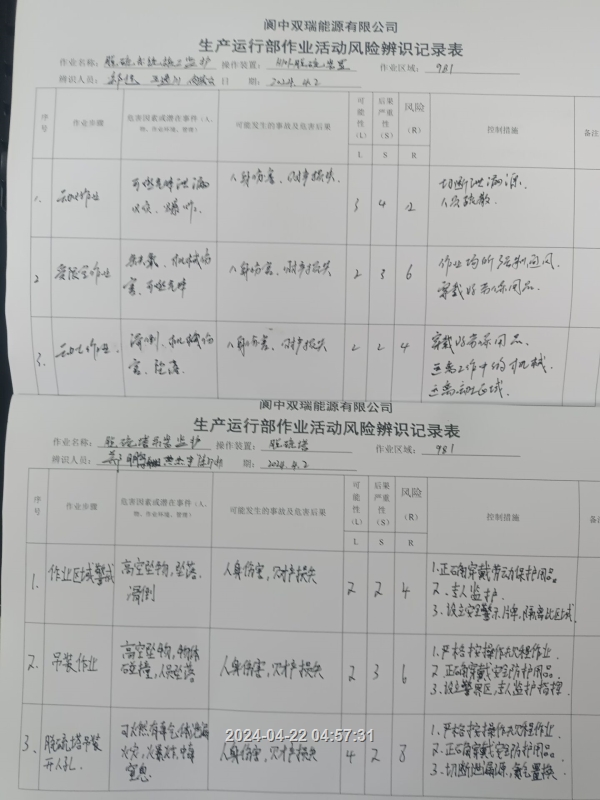 阆中双瑞能源有限公司
生产运行部作业活动风险辨识记录表
作业名称: 脱硫系统施工监护 操作装置: 脱硫装置 作业区域: 981
辨识人员: 日 期: 2024.4.2
序号 作业步骤 危害因素或潜在事件(人、物、作业环境、管理) 可能发生的事故及危害后果 可能性(L) 后果严重性(S) 风险(R) 控制措施 备注
L S R
1. 动火作业 可燃气体泄漏 人身伤害、财产损失. 3 4 12 切断泄漏源.
火灾、爆炸. 人员疏散.
2 受限空作业 机械伤 人身伤害、财产损失 2 3 6 作业场所强制通风.
害、可燃气体 穿戴好劳保用品.
3. 动土作业. 滑倒、机械伤 人身伤害、财产损失 2 2 4 穿戴好劳保用品.
害、坠落. 远离工作中的机械.
远离动土区域.
阆中双瑞能源有限公司
生产运行部作业活动风险辨识记录表
作业名称: 脱硫塔吊装监护 操作装置: 脱硫塔 作业区域: 981
辨识人员: 期: 2024.4.2
序号 作业步骤 危害因素或潜在事件(人、物、作业环境、管理) 可能发生的事故及危害后果 可能性(L) 后果严重性(S) 风险(R) 控制措施 备注
L S R
1. 作业区域警戒 高空坠物,坠落. 人身伤害,财产损失 2 2 4 1.正确穿戴劳动保护用品.
滑倒 2.专人监护.
3.设立安全警示片牌,隔离此区域.
2. 吊装作业 高空坠物,物体 人身伤害,财产损失 2 3 6 1.严格按操作规程作业.
碰撞,人员坠落 2.正确穿戴安全防护用品.
3.设立警界区,专人监护指挥.
3、 脱硫塔吊装 可燃有毒气体泄漏 人身伤害,财产损失 4 2 8 1.严格按操作规程作业.
开人孔. 火灾,爆炸,中毒 2.正确穿戴安全防护用品.
窒息. 3.切断泄漏源,氮气置换.
2024-04-22 04:57:31